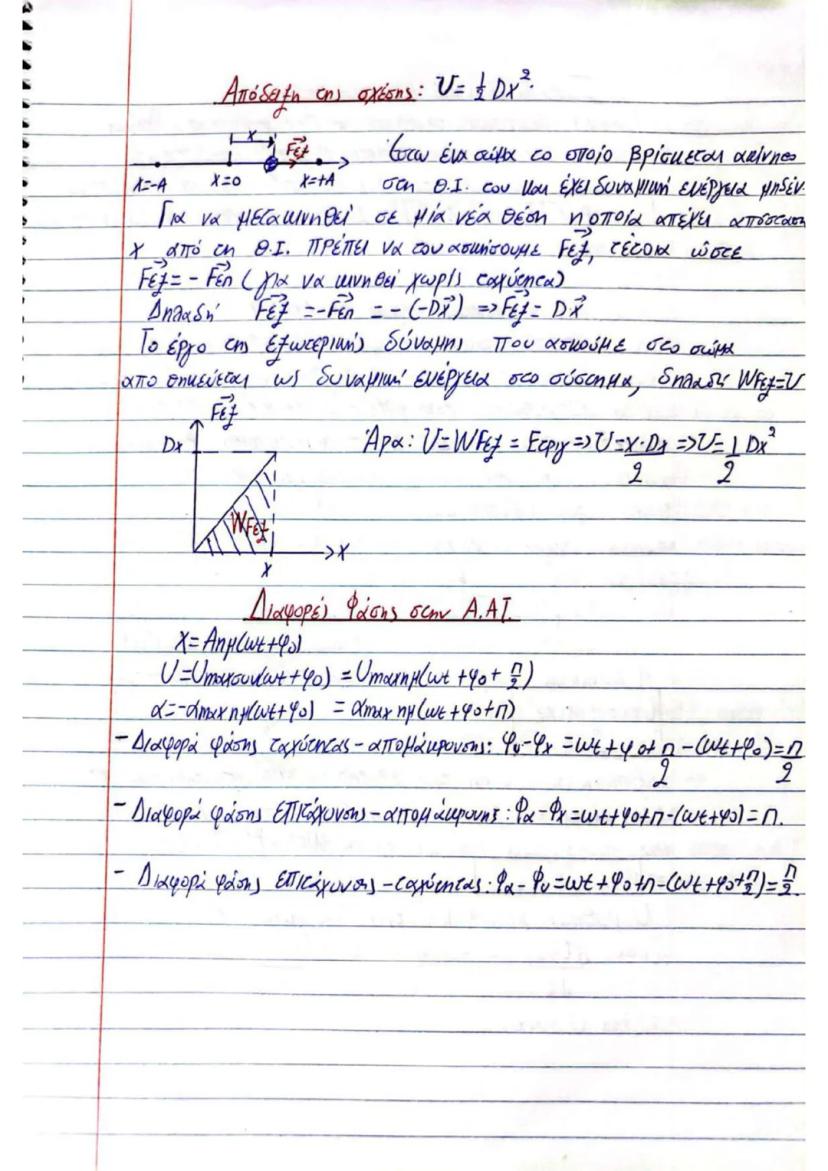 Απόδειξη της σχέσης: U = 1/2 Dx².
x
Fεξ
x=-A x=0 x=+A
Έστω ένα σώμα το οποίο βρίσκεται ακίνητο
στη Θ.Ι. του και έχει δυναμική ενέργεια μηδέν.
Για να μετακινηθεί σε μία νέα θέση η οποία απέχει απόσταση
x από τη Θ.Ι. πρέπει να του ασκήσουμε Fεξ, τέτοια ώστε
Fεξ = - Fεπ (για να κινηθεί χωρίς ταχύτητα)
Δηλαδή Fεξ = -Fεπ = - (-Dx) => Fεξ = Dx
Το έργο της εξωτερικής δύναμης που ασκούμε στο σώμα
αποθηκεύεται ως δυναμική ενέργεια στο σύστημα, δηλαδή WFεξ=U
Fεξ
Dx
WFεξ
x
x
Άρα: U = WFεξ = Eτριγ => U = x·Dx/2 => U = 1/2 Dx²
Διαφορές φάσης στην Α.Α.Τ.
x = Aημ(ωt+φ0)
U = Umaxσυν(ωt+φ0) = Umaxημ(ωt+φ0+π/2)
α = -αmaxημ(ωt+φ0) = αmaxημ(ωt+φ0+π)
- Διαφορά φάσης ταχύτητας - απομάκρυνσης: φυ-φx = ωt+φ0+π/2-(ωt+φ0) = π/2
- Διαφορά φάσης επιτάχυνσης - απομάκρυνης: φα-φx = ωt+φ0+π-(ωt+φ0) = π.
- Διαφορά φάσης επιτάχυνσης - ταχύτητας: φα-φυ = ωt+φ0+π-(ωt+φ0+π/2) = π/2.